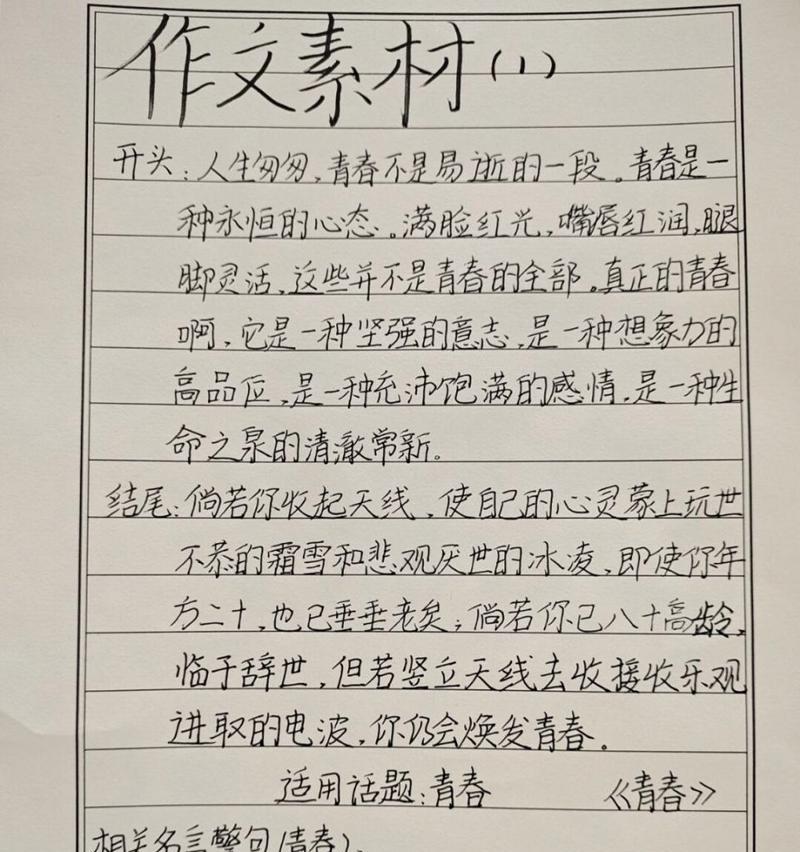 作文素材(1)
开头:人生匆匆,青春不是易逝的一段。青春是一
种永恒的心态。满脸红光,嘴唇红润,腿
脚灵活,这些并不是青春的全部。真正的青春
啊,它是一种坚强的意志,是一种想象力的
高品位,是一种充沛饱满的感情,是一种生
命之泉的清澈常新。
结尾:倘若你收起天线,使自己的心灵蒙上玩世
不恭的霜雪和悲观厌世的冰凌,即使你年
方二十,也已垂垂老矣;倘若你已八十高龄,
临于辞世,但若竖立天线去收接收乐观
进取的电波,你仍会焕发青春。
适用话题:青春 《青春》
相关名言警句(青春).